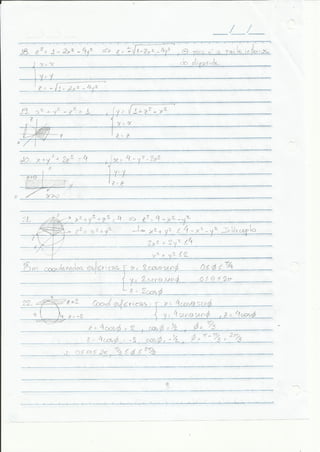 18. z² = 1 - 2x² - 4y² ⇒ z = ±√1-2x²-4y²
x = x
do elipsoide
y = y
z = -√1-2x²-4y²
19. x² + y² - z² = 1 , y = √1+z²-x²
x = x
z = z
20. x + y² + 2z² = 4 , x = 4-y²-2z²
y = y
z = z
21. x² + y² + z² = 4 ⇒ z² = 4-x²-y²
z² = x² + y² → x² + y² ≤ 4-x²-y²
2x² + 2y² ≤ 4
x² + y² ≤ 2
Em coordenadas esféricas x = 2cosθsenφ 0≤φ≤π/4
y = 2senθsenφ 0≤θ≤2π
z = 2cosφ
22. z=2 Coord. esféricas x = 4cosθsenφ
z=-2 y = 4senθsenφ , z = 4cosφ
z = 4cosφ = 2 , cosφ = 1/2 , φ = π/3
z = 4cosφ = -2, cosφ = -1/2, φ = π-π/3 = 2π/3
∴ 0≤θ≤2π, π/3≤φ≤2π/3